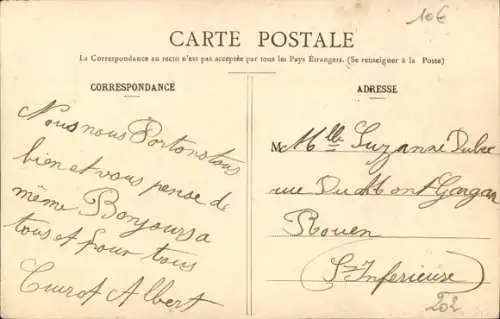 10€
CARTE POSTALE
La Correspondance au recto n'est pas acceptée par tous les Pays Étrangers. (Se renseigner à la Poste)
CORRESPONDANCE
ADRESSE
Nous nous Portons tous
bien et vous pense de
même Bonjours a
tous et pour tous
Albert
Mlle Suzanne
rue Du Mont Gargan
Rouen
(Sne Inferieure)
202